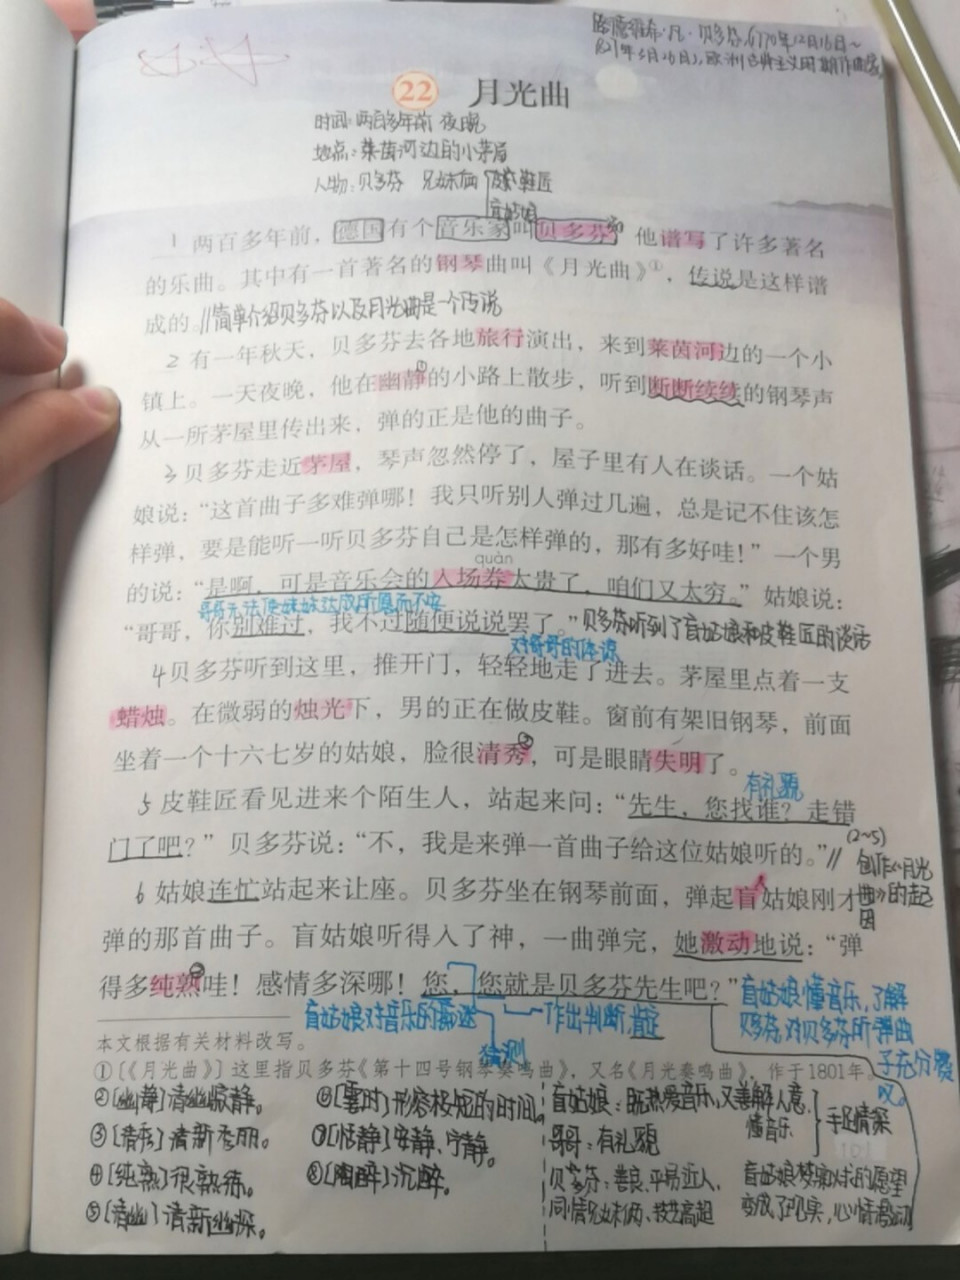 路德维希·凡·贝多芬(1770年12月16日~
1827年3月26日),欧洲古典主义时期作曲家。
22 月光曲
时间:两百多年前 夜晚
地点:莱茵河边的小茅屋
人物:贝多芬 兄妹俩 皮鞋匠
盲姑娘
1 两百多年前,德国有个音乐家叫贝多芬,他谱写了许多著名
的乐曲。其中有一首著名的钢琴曲叫《月光曲》①,传说是这样谱
成的。//简单介绍贝多芬以及月光曲是一个传说
2 有一年秋天,贝多芬去各地旅行演出,来到莱茵河边的一个小
镇上。一天夜晚,他在幽静②的小路上散步,听到断断续续的钢琴声
从一所茅屋里传出来,弹的正是他的曲子。
3 贝多芬走近茅屋,琴声忽然停了,屋子里有人在谈话。一个姑
娘说:“这首曲子多难弹哪!我只听别人弹过几遍,总是记不住该怎
样弹,要是能听一听贝多芬自己是怎样弹的,那有多好哇!”一个男
quàn
的说:“是啊,可是音乐会的入场券太贵了,咱们又太穷。”姑娘说:
哥哥无法使妹妹达成所愿而不安
“哥哥,你别难过,我不过随便说说罢了。”贝多芬听到了盲姑娘和皮鞋匠的谈话
对哥哥的体谅
4 贝多芬听到这里,推开门,轻轻地走了进去。茅屋里点着一支
蜡烛。在微弱的烛光下,男的正在做皮鞋。窗前有架旧钢琴,前面
坐着一个十六七岁的姑娘,脸很清秀③,可是眼睛失明了。
有礼貌
5 皮鞋匠看见进来个陌生人,站起来问:“先生,您找谁?走错
门了吧?”贝多芬说:“不,我是来弹一首曲子给这位姑娘听的。”//
(2~5)
创作《月光
曲》的起
因
6 姑娘连忙站起来让座。贝多芬坐在钢琴前面,弹起盲姑娘刚才
弹的那首曲子。盲姑娘听得入了神,一曲弹完,她激动地说:“弹
得多纯熟④哇!感情多深哪!您,您就是贝多芬先生吧?”
盲姑娘对音乐的
猜测
作出判断,肯定
盲姑娘懂音乐,了解
贝多芬,对贝多芬所弹曲
子充分赞
叹。
本文根据有关材料改写。
①〔《月光曲》〕这里指贝多芬《第十四号钢琴奏鸣曲》,又名《月光奏鸣曲》,作于1801年。
②[幽静]清幽寂静。
③[清秀]清新秀丽。
④[纯熟]很熟练。
⑤[清幽]清新幽深。
⑥[霎时]形容极短的时间。
⑦[恬静]安静、宁静。
⑧[陶醉]沉醉。
盲姑娘:既热爱音乐,又善解人意,
懂音乐
哥哥:有礼貌
手足情深
贝多芬:善良、平易近人,
同情兄妹俩、技艺高超
101
盲姑娘梦寐以求的愿望
变成了现实,心情激动